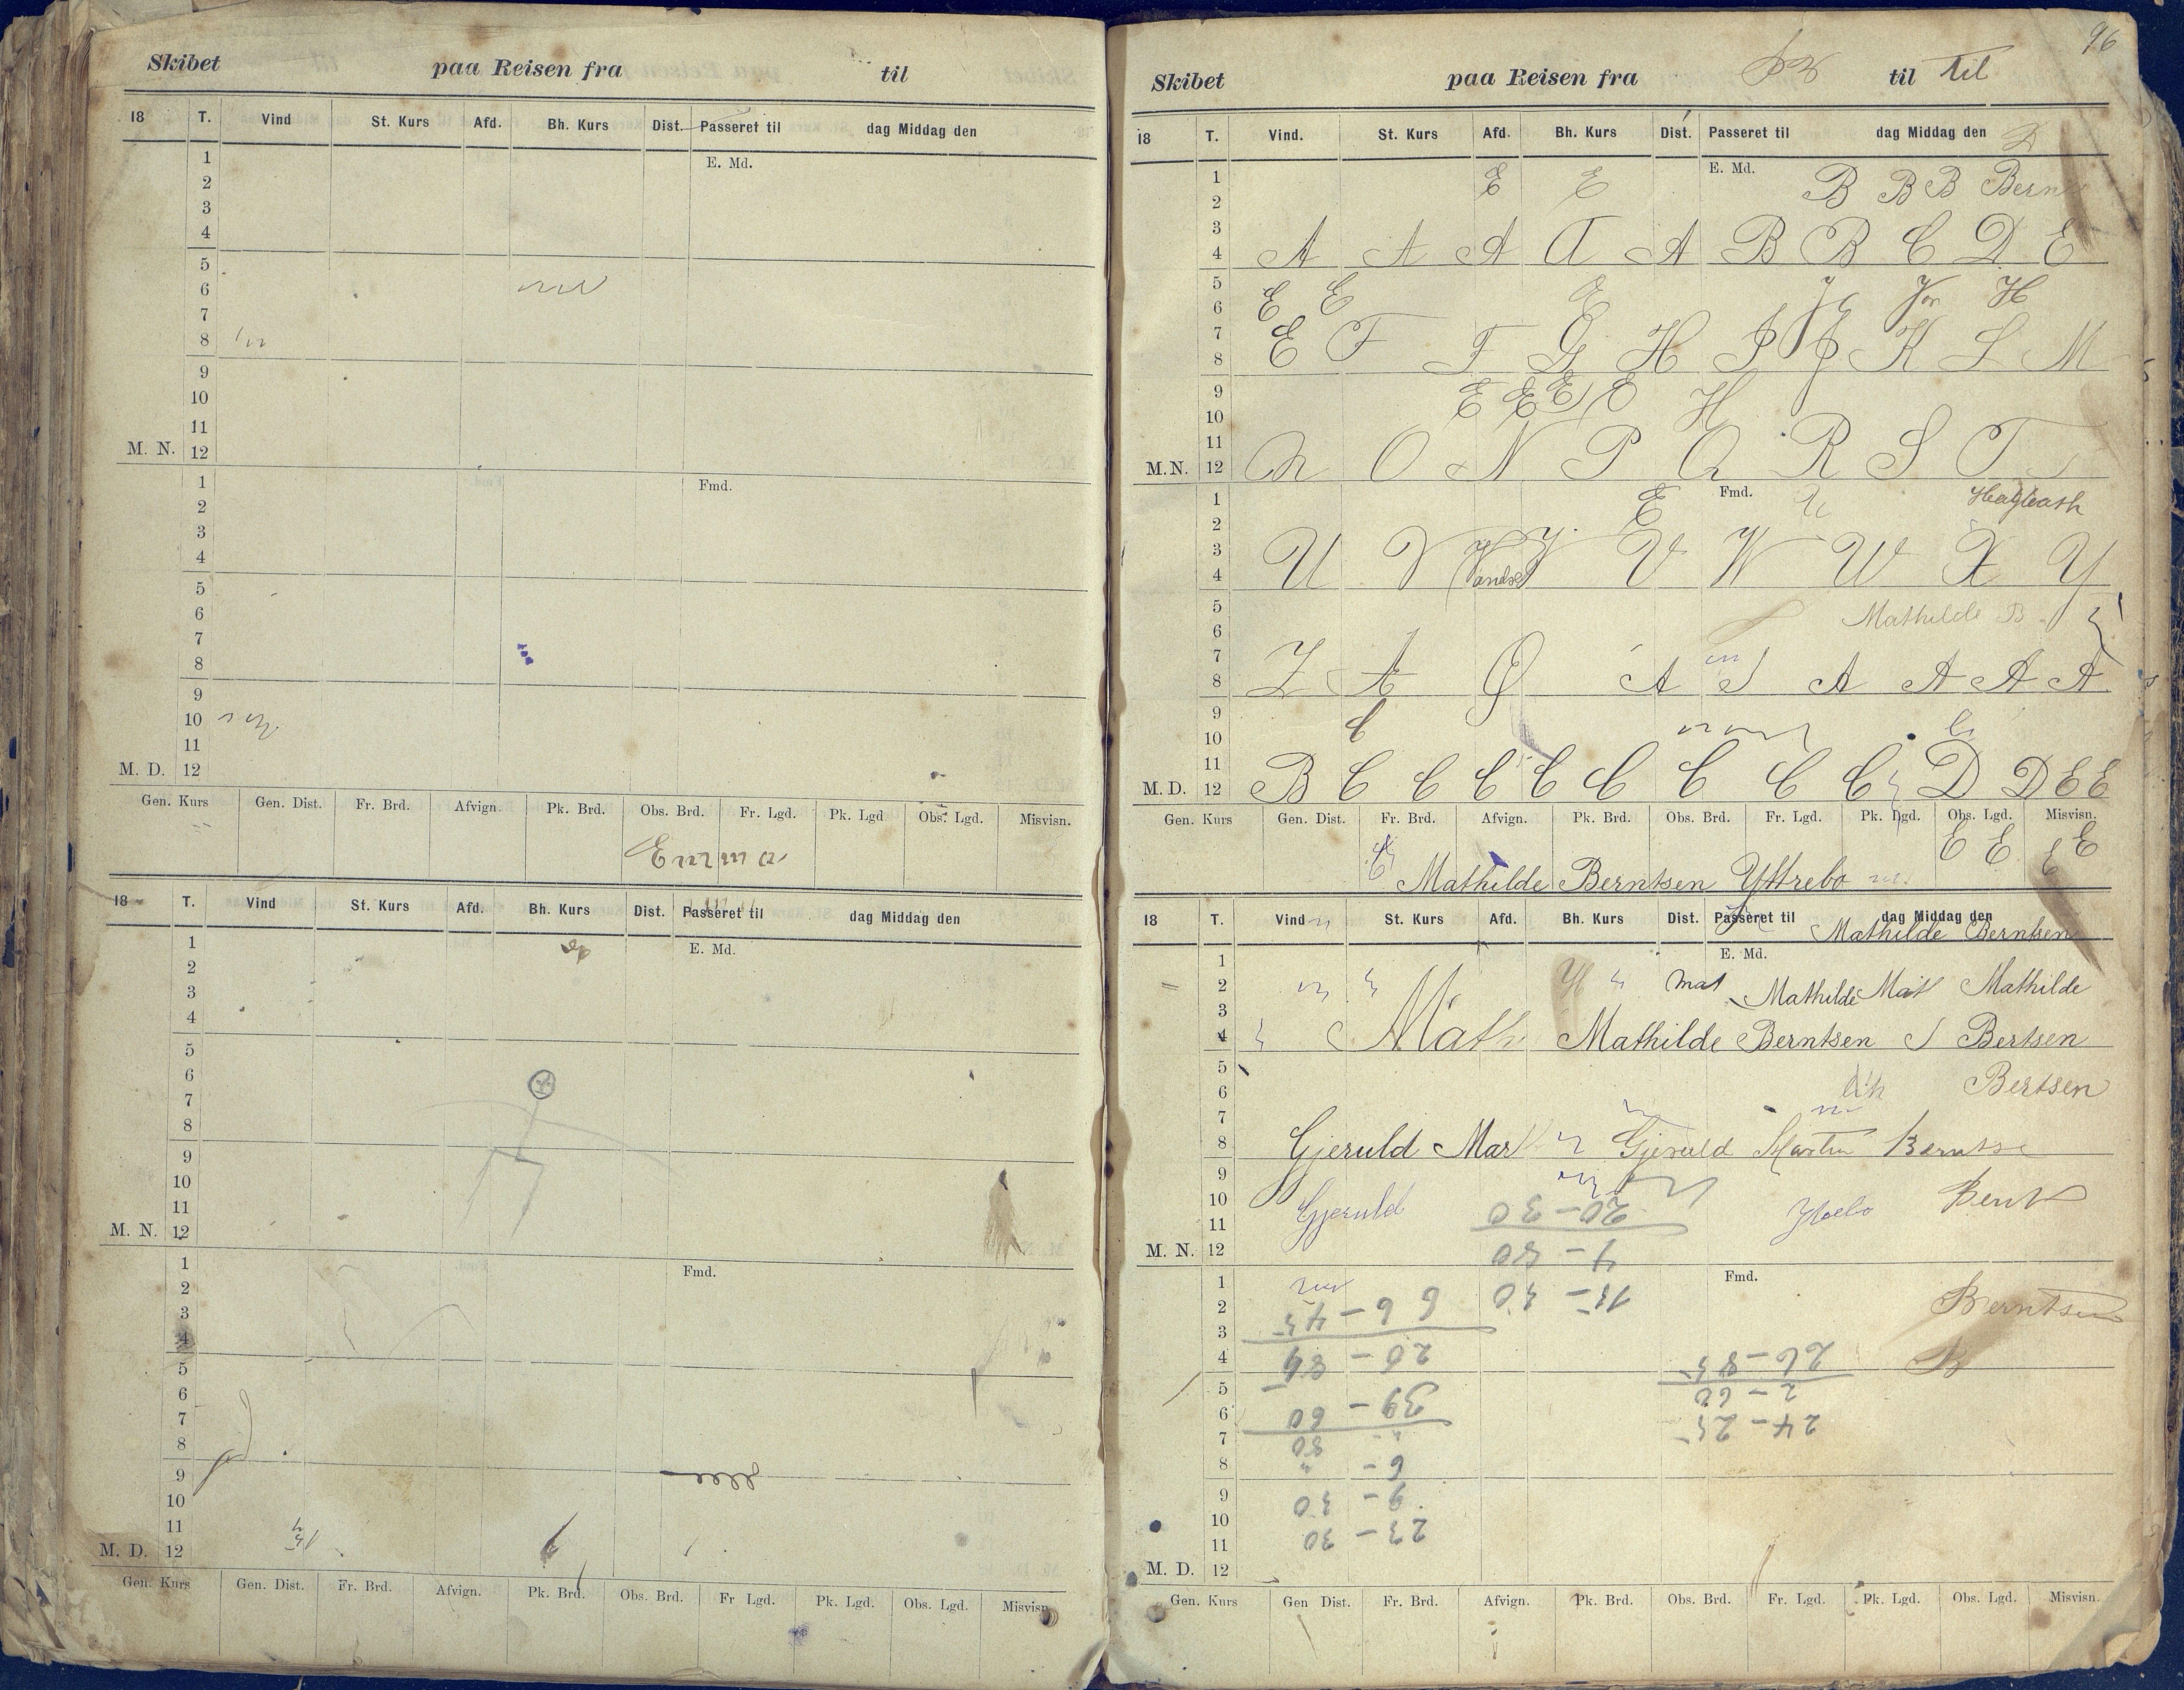 Skibet paa Reisen fra til
18 T. Vind St. Kurs Afd. Bh. Kurs Dist. Passeret til dag Middag den
1 E. Md.
2
3
4
5
6
7
8
9
10
11
M. N. 12
1 Fmd.
2
3
4
5
6
7
8
9
10
11
M. D. 12
Gen. Kurs Gen. Dist. Fr. Brd. Afvign. Pk. Brd. Obs. Brd. Fr. Lgd. Pk. Lgd Obs. Lgd. Misvisn.
Emma
18 T. Vind St. Kurs Afd. Bh. Kurs Dist. Passeret til dag Middag den
1 E. Md.
2
3
4
5
6
7
8
9
10
11
M. N. 12
1 Fmd.
2
3
4
5
6
7
8
9
10
11
M. D. 12
Gen. Kurs Gen. Dist. Fr. Brd. Afvign. Pk. Brd. Obs. Brd. Fr Lgd. Pk. Lgd. Obs. Lgd. Misvisn
96
Skibet paa Reisen fra til til
18 T. Vind. St. Kurs Afd. Bh. Kurs Dist. Passeret til dag Middag den
E. Md.
1 E E B B B Bern
2
3
4 A A A A A B B C D E
5
6 E E E H
7
8 E F F G H I J K L M
9
10 E E E E H
11
M.N. 12 N O N P Q R S T
1 E Fmd.
2
3
4 U V V W W X Y
5
6 Mathilde B
7
8 Z Æ Ø A A A A A
9
10 C
11
M. D. 12 B C C C C C C C C D D E E
Gen. Kurs Gen. Dist. Fr. Brd. Afvign. Pk. Brd. Obs. Brd. Fr. Lgd. Pk. Lgd. Obs. Lgd. Misvisn.
E E E E
Mathilde Berntsen Yttrebo
18 T. Vind St. Kurs Afd. Bh. Kurs Dist. Passeret til dag Middag den
Mathilde Berntsen
1 E. Md.
2 Mat Mathilde Mat Mathilde
3
4 Math Mathilde Berntsen Bertsen
5
6 Bertsen
7
8 Gjeruld Mar Gjeruld Martin Berntse
9
10 Gjeruld 20-30 Bent
11
M. N. 12
1 Fmd.
2 Berntsen
3
4 26-85 B
5
6 2-60
7 39-60 24-25
8
9
10 9-30
11 23-30
M. D. 12
Gen. Kurs Gen Dist. Fr. Brd. Afvign. Pk. Brd. Obs. Brd. Fr. Lgd. Pk. Lgd. Obs. Lgd. Misvisn.